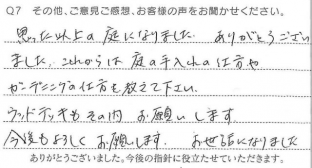 Q7 その他、ご意見ご感想、お客様の声をお聞かせください。
思った以上の庭になりました。ありがとうござい
ました。これからは庭の手入れの仕方や
ガーデニングの仕方も教えて下さい。
ウッドデッキもその内お願いします
今後もよろしくお願いします。お世話になりました
ありがとうございました。今後の指針に役立たせていただきます。